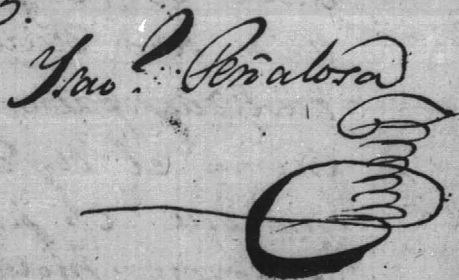 Ysao? Peñalosa